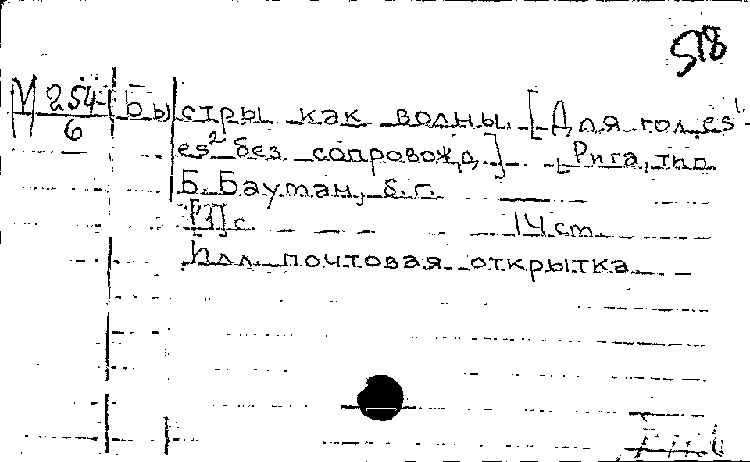 518
М 254
6
Быстры как волны. [Для гол. es¹-
es² без сопровожд.] Рига, тип.
Б. Бауман, б.г.
[1] с. 14 cm.
Илл. почтовая открытка